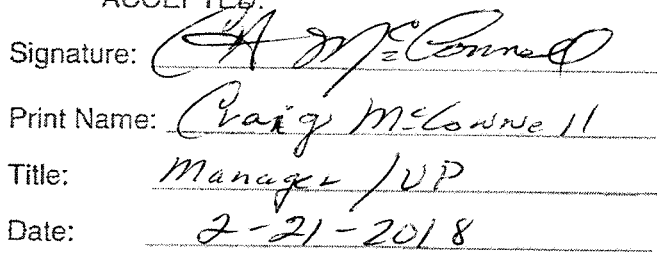 ACCEPTED:
Signature: CA McConnell
Print Name: Craig McConnell
Title: Manager / VP
Date: 2-21-2018